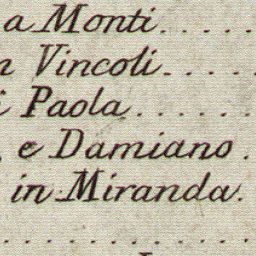 a Monti.....
n Vincoli.....
i Paola......
e Damiano.
in Miranda.